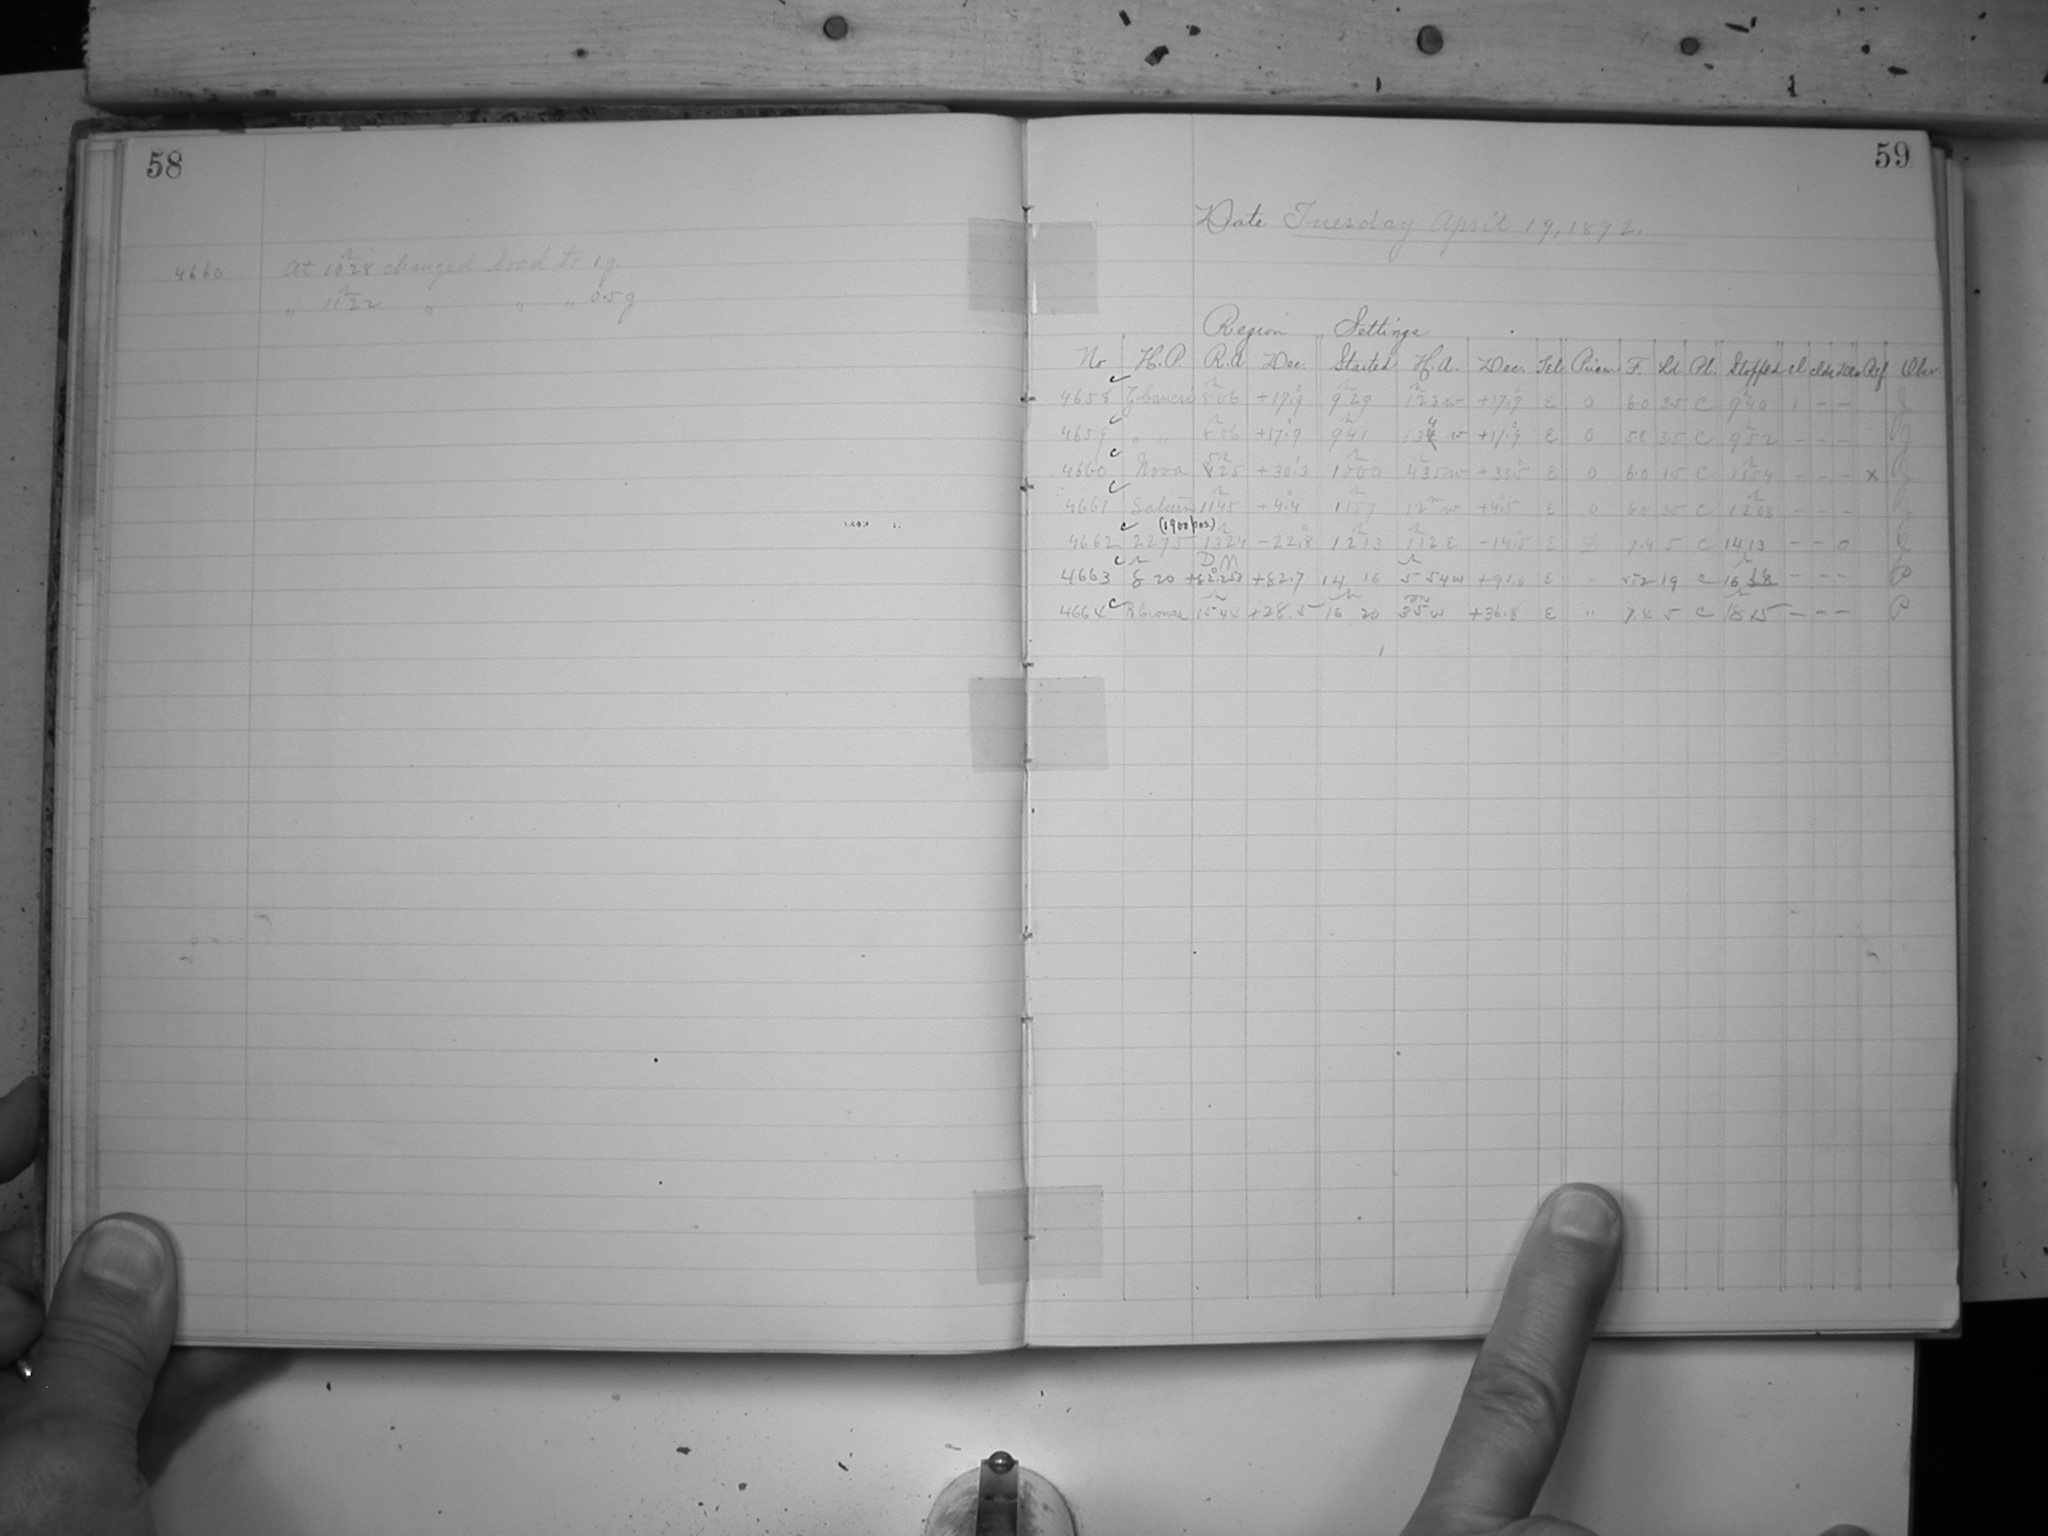 58
4660 At 10h28 changed load to 1g.
" 11h22 " " " 0.5g
59
Date Tuesday April 19, 1892.
Region Settings
No H.P. R.A. Dec. Started H.A. Dec. Tel. Prism F. Ld. Pl. Stopped Ref Obsr.
4658 ζ Cancri 8h06 +17.9 9h29 1h23w +17.9 E 0 6.0 35 C 9h40 1 - -
4659 " " 8h06 +17.9 9h41 w +17.9 E 0 58 35 C 9h52 - - -
4660 Nova +30.3 10h00 4h35w +30.5 E 0 6.0 C 11h54 - - - x
4661 Saturn 11h45 +4.4 11h57 12m w +4.5 E 0 6.0 35 C 12h08 - - -
(1900 pos.)
4662 2275 13h24 -22.8 12h13 1h12 E -14.5 E 7.4 5 C 14 13 - - 0
DM
4663 8h 20 +82°253 +82.7 14 16 5h54w E " 19 C 16 - - - P
4664 R Coronae 15h44 +28.5 16h 20 35m w +36.8 E " 7.4 5 C 18h15 - - - P